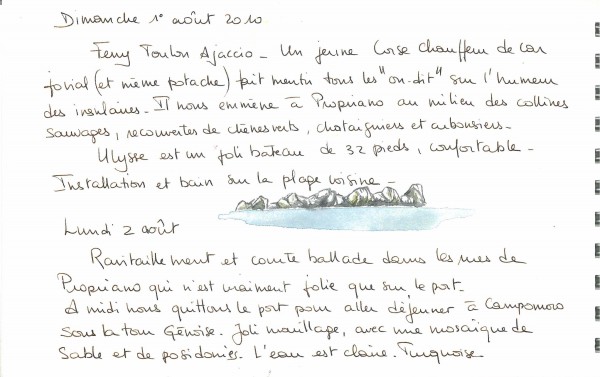 Dimanche 1° août 2010
Ferry Toulon Ajaccio - Un jeune Corse chauffeur de car
jovial (et même potache) fait mentir tous les "on-dit" sur l'humeur
des insulaires. Il nous emmène à Propriano au milieu des collines
sauvages, recouvertes de chênes verts, chataigniers et arbousiers.
Ulysse est un joli bateau de 32 pieds, confortable -
Installation et bain sur la plage voisine -
Lundi 2 août
Ravitaillement et courte ballade dans les rues de
Propriano qui n'est vraiment jolie que sur le port.
A midi nous quittons le port pour aller déjeuner à Campomoro
sous la tour Génoise. Joli mouillage, avec une mosaïque de
sable et de posidonies. L'eau est claire. Turquoise